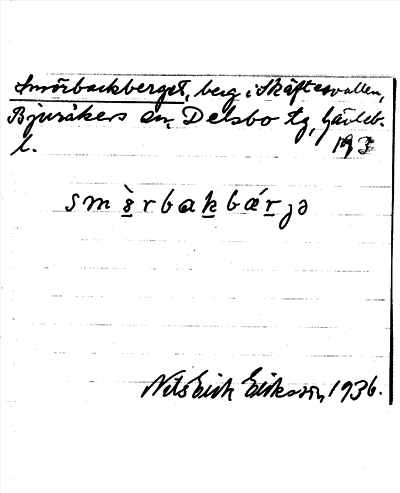 Smörbackberget, berg i Skäftesvallen,
Bjuråkers sn, Delsbo tg, Gävleb.
l. 193
smö̀rbakbǽrjə
Nils Erik Eriksson, 1936.